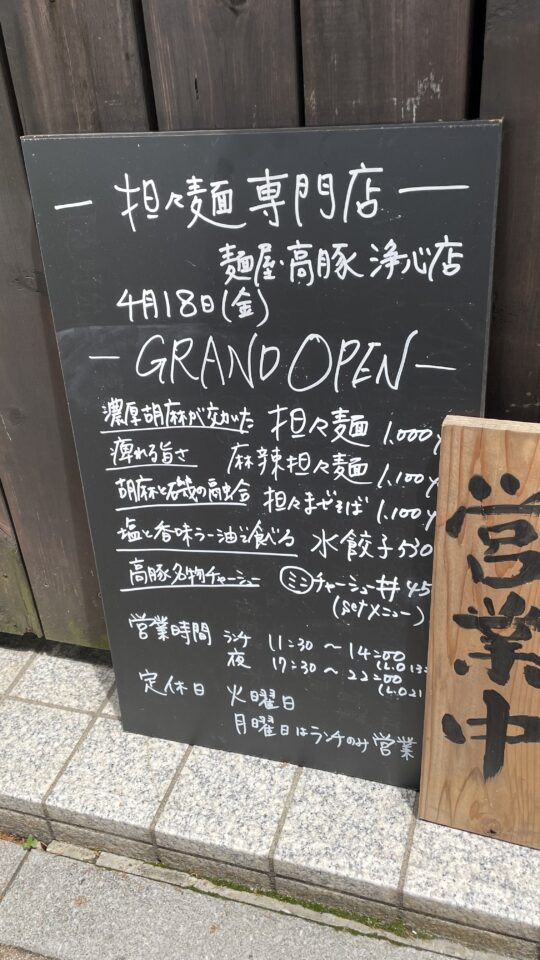 — 担々麺 専門店 —
麺屋 高豚 浄心店
4月18日(金)
— GRAND OPEN —
濃厚胡麻が交かた 担々麺 1,000y
痺れる旨さ 麻辣担々麺 1,100y
胡麻と磯の融合 担々まぜそば 1,100y
塩と香味ラー油で食べる 水餃子 530
高豚名物チャーシュー ミニチャーシュー丼 45
(setメニュー)
営業時間 ランチ 11:30 〜 14:00
(L.O 13:
夜 17:30 〜 22:00
(L.O 21
定休日 火曜日
月曜日はランチのみ営業
営業中